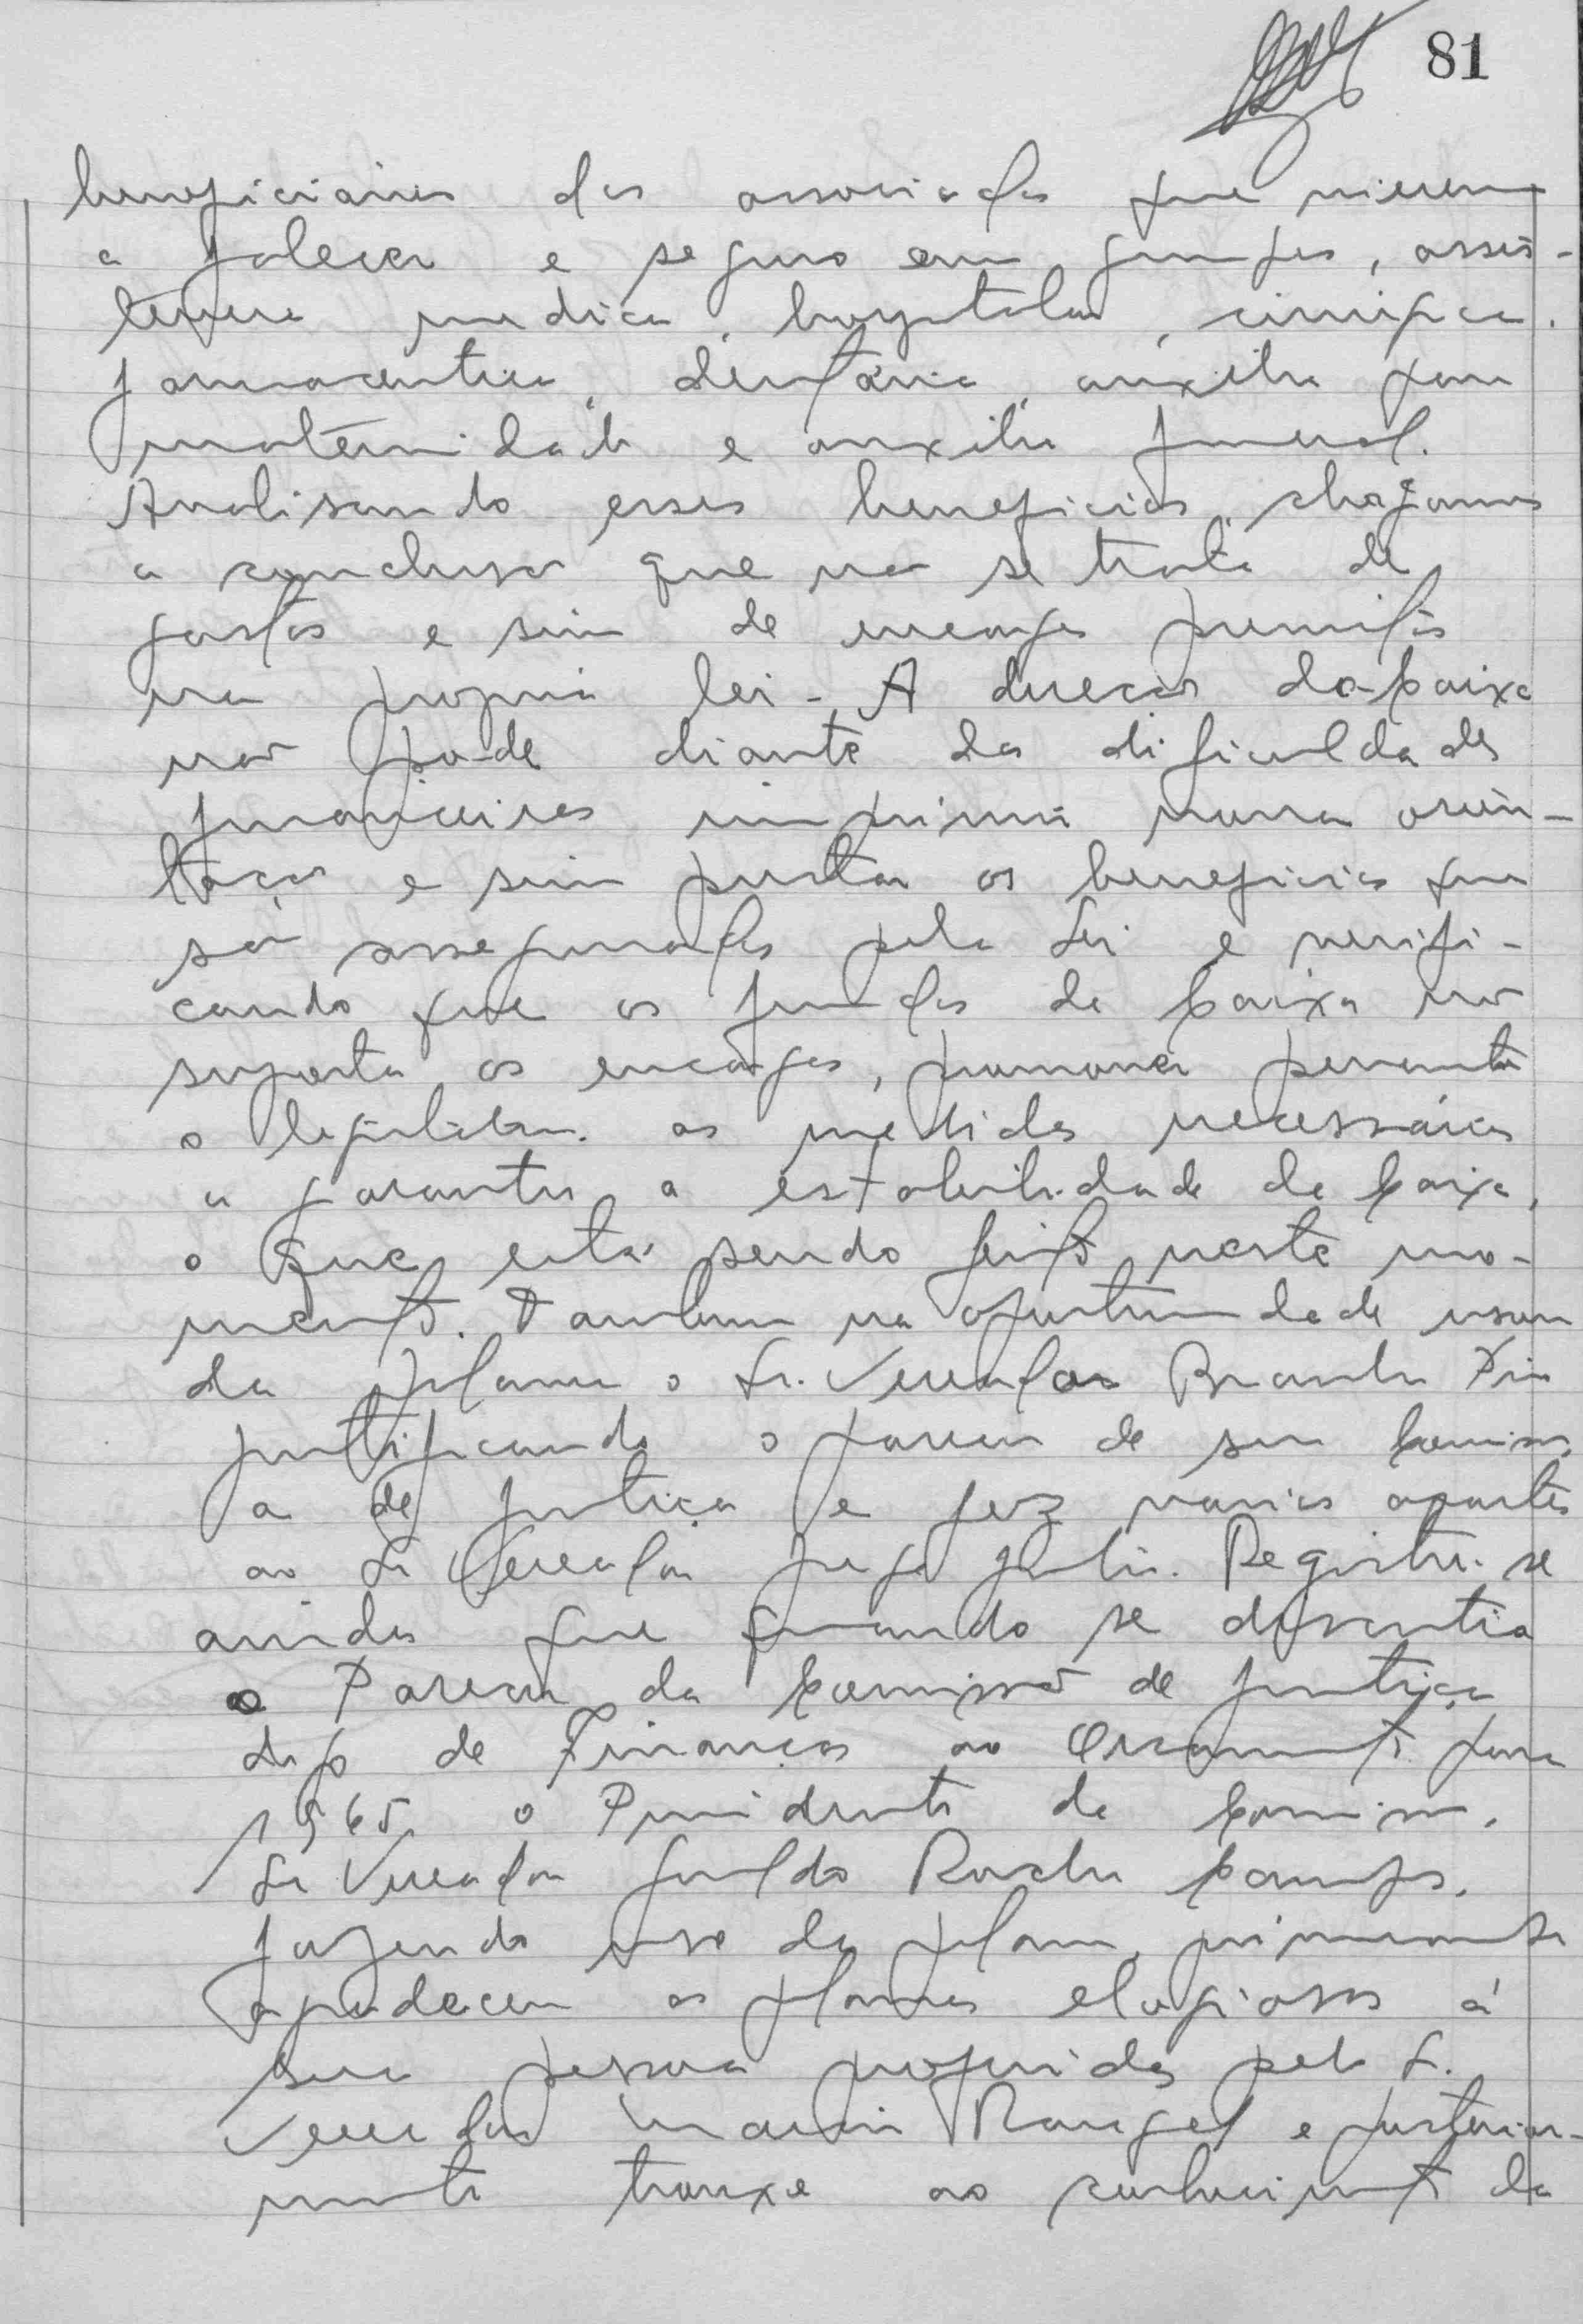 81
beneficiarios dos associados que vierem
a falecer e seguro em grupos, assis-
tencia medica, hospitalar, cirurgica,
farmaceutica, dentária, auxilio para
maternidade e auxilio funeral.
Analisando esses beneficios, chegamos
a conclusão que não se trata de
gastos e sim de encargos previstos
na propria lei - A direcao da Caixa
não pode diante das dificuldades
financeiras imprimir nova orien-
tação e sim prestar os beneficios que
são assegurados pela Lei e verifi-
cando que os fundos da Caixa não
suporta os encargos, promover perante
o legislativo as medidas necessárias
a garantir a estabilidade da Caixa,
o que está sendo feito neste mo-
mento. Tambem na oportunidade usou
da palavra o Sr. Vereador Brandão
justificando o parecer de sua Comissão
de Justiça e fez varios apartes
ao Sr Vereador Registre-se
ainda que quando se discutia
o Parecer da Comissão de Justiça
digo de Finanças ao Orçamento para
1965 o Presidente da Comissão,
Sr Vereador Geraldo Rocha Campos,
fazendo uso da palavra, primeiramente
agradeceu as palavras elogiosas á
sua pessoa proferidas pelo Sr.
Vereador Rangel e posterior-
mente trouxe ao conhecimento da